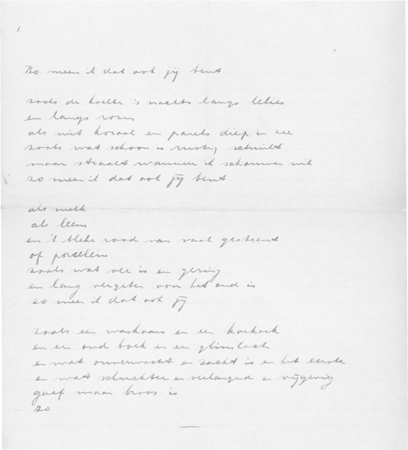 1.
Zo meen ik dat ook jij bent
zoals de koelte 's nachts langs lelies
en langs rozen
als wit koraal en parels diep in zee
zoals wat schoon is rustig schuilt
maar straalt wanneer ik schouwen wil
zo meen ik dat ook jij bent
als melk
als leem
en 't bleke rood van vaal gesteente
of porselein
zoals wat ver is en gering
en lang vergeten voor het oud is
zo meen ik dat ook jij
zoals een waskaars en een koekoek
en een oud boek en een glimlach
en wat onverwacht en zacht is en het eerste
en wat schuchter en verlangend en vrijgevig
gaaf maar broos is
zo